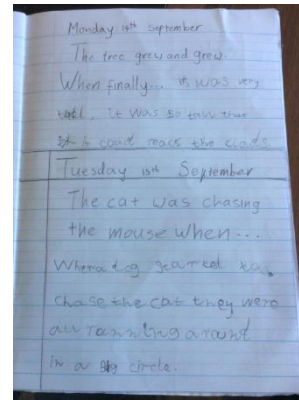 Monday 14th September
The tree grew and grew.
When finally... it was very
tall, it was so taw that
it coud reach the clads
Tuesday 15th September
The cat was chasing
the mouse when...
When a dog started to
chase the cat they were
all running around
in a big circle.